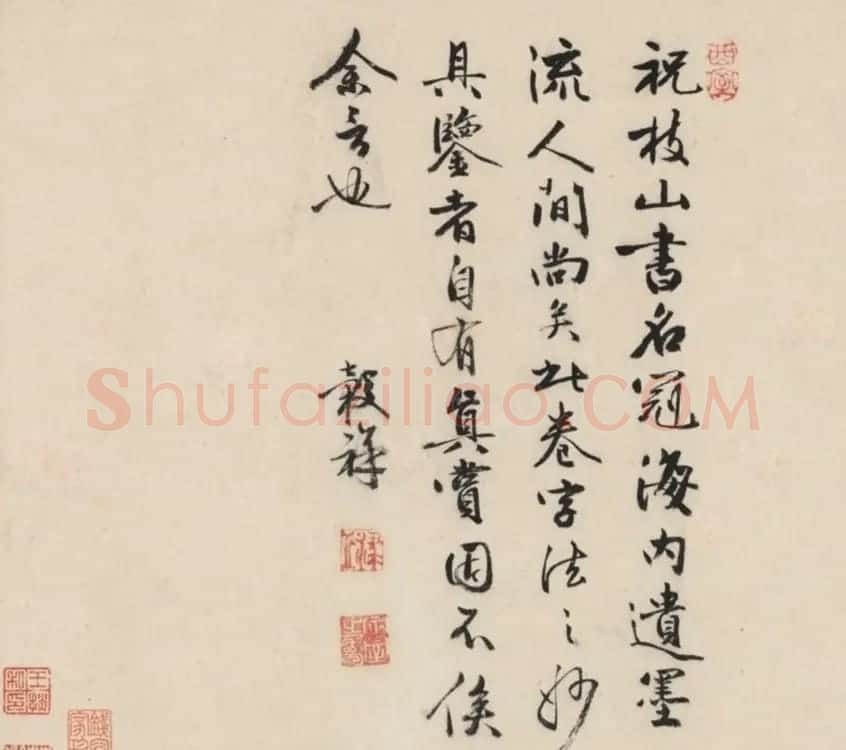 祝枝山書名冠海内遺墨
流人間尚矣此卷字法之妙
具鑒者自有真賞固不俟
余言也
穀祥
Shufaziliao.COM